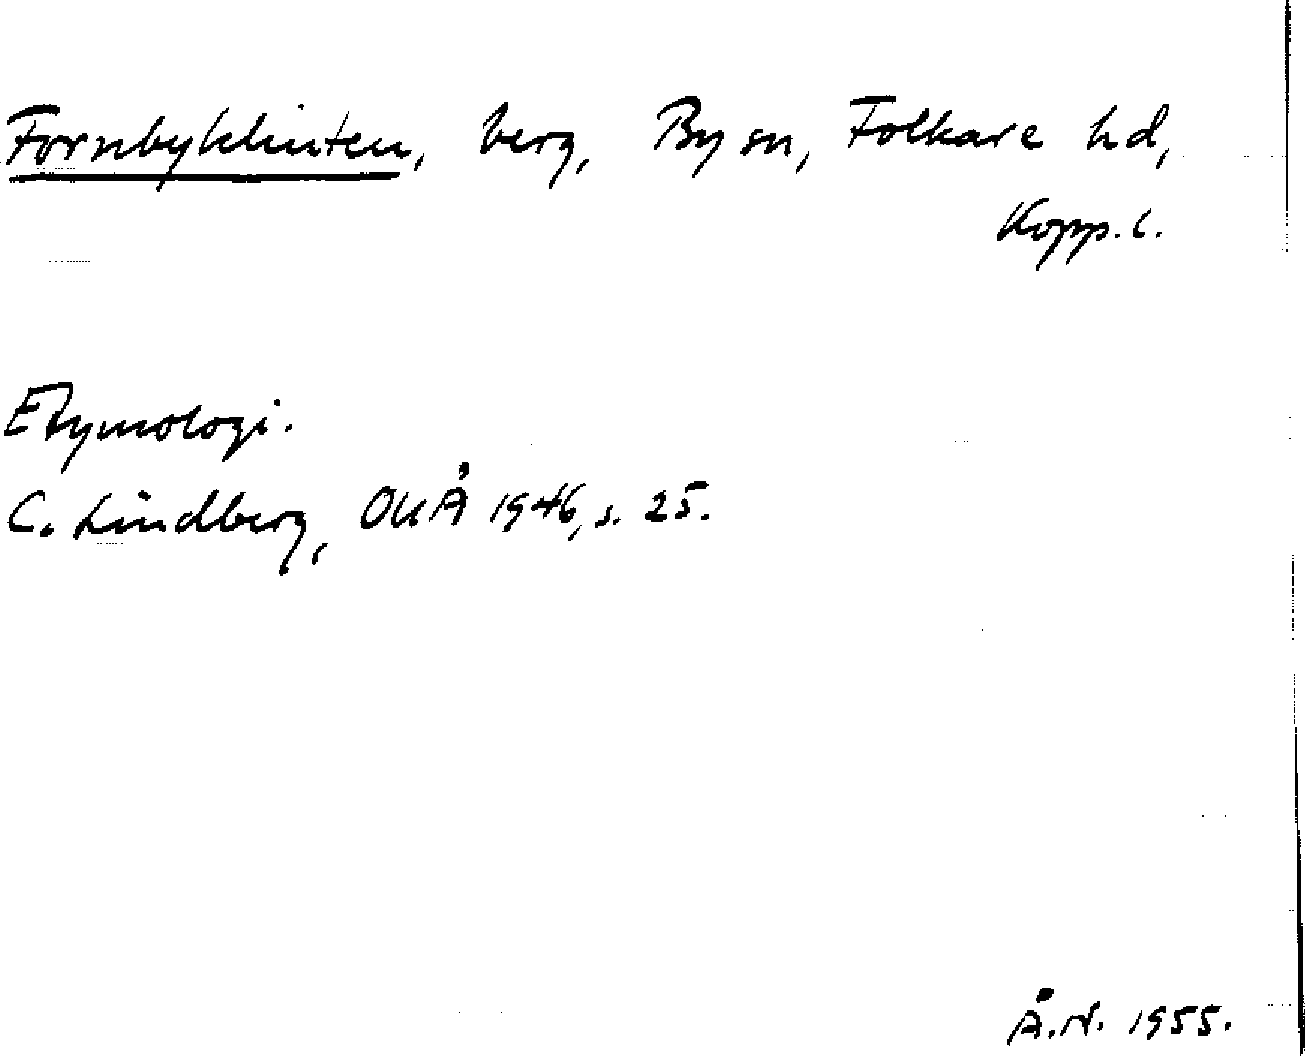 Fornbyklinten, berg, By sn, Folkare hd,
Kopp. l.
Etymologi.
C. Lindberg, OUÅ 1946, s. 25.
Å.N. 1955.